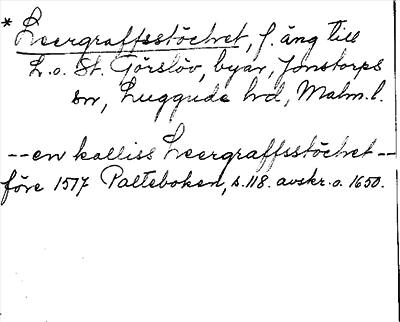 *Leergraffsstöchet, f. äng till
L. o. St. Görslöv, byar, Jonstorps
sn, Luggude hd., Malm. l.
--en kalliss Leergraffsstöchet--
före 1517 Palteboken, s. 118. avskr. o. 1650.